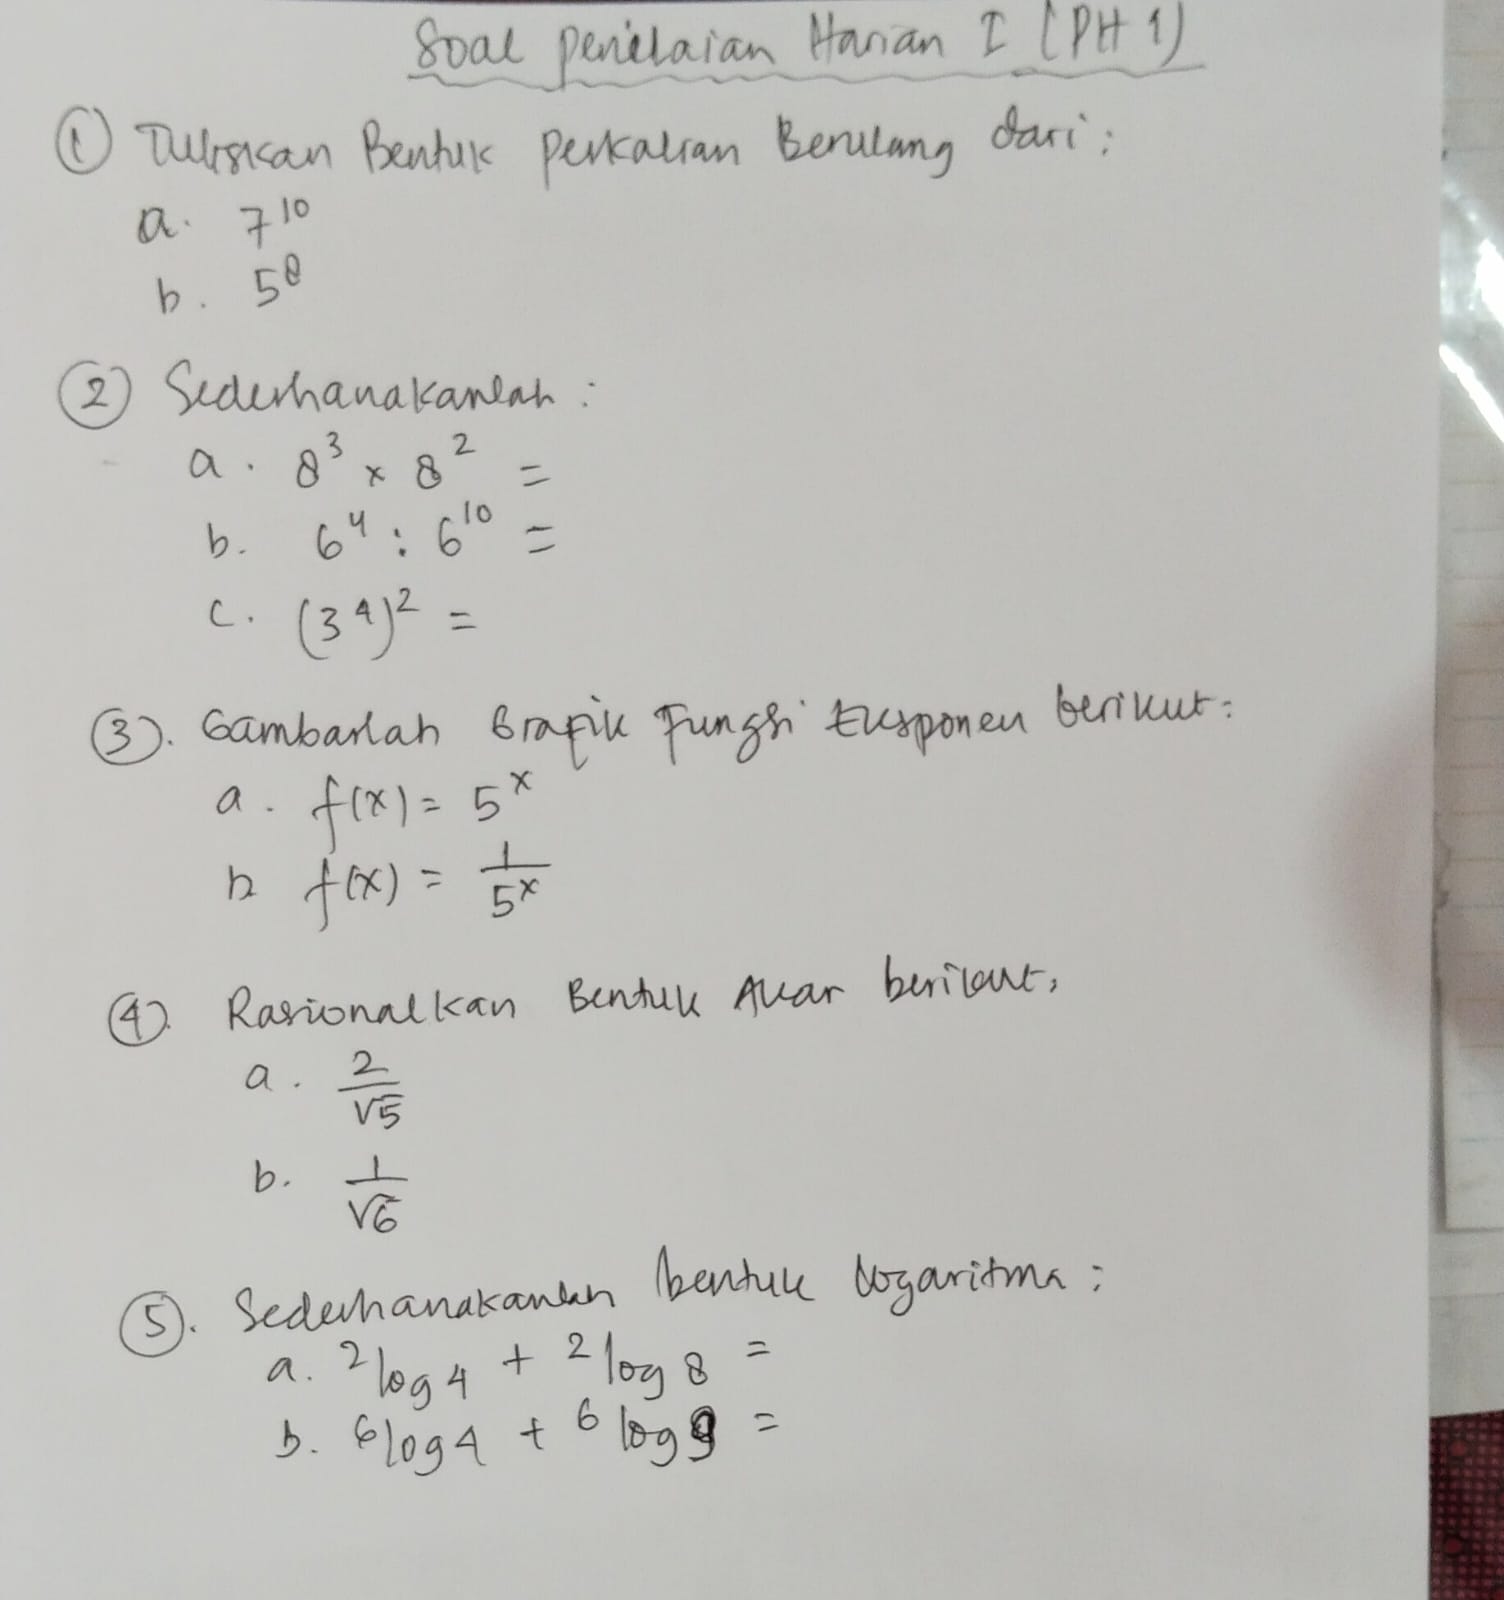 Soal Penilaian Harian I (PH 1)
① Tuliskan Bentuk Perkalian Berulang dari :
a. 7¹⁰
b. 5⁸
② Sederhanakanlah :
a. 8³ x 8² =
b. 6⁴ : 6¹⁰ =
c. (3⁴)² =
③. Gambarlah Grafik Fungsi Eksponen berikut :
a. f(x) = 5ˣ
b f(x) = 1/5ˣ
④. Rasionalkan Bentuk Akar berikut,
a. 2/√5
b. 1/√6
⑤. Sederhanakanlah bentuk logaritma :
a. ²log 4 + ²log 8 =
b. ⁶log 4 + ⁶log 9 =